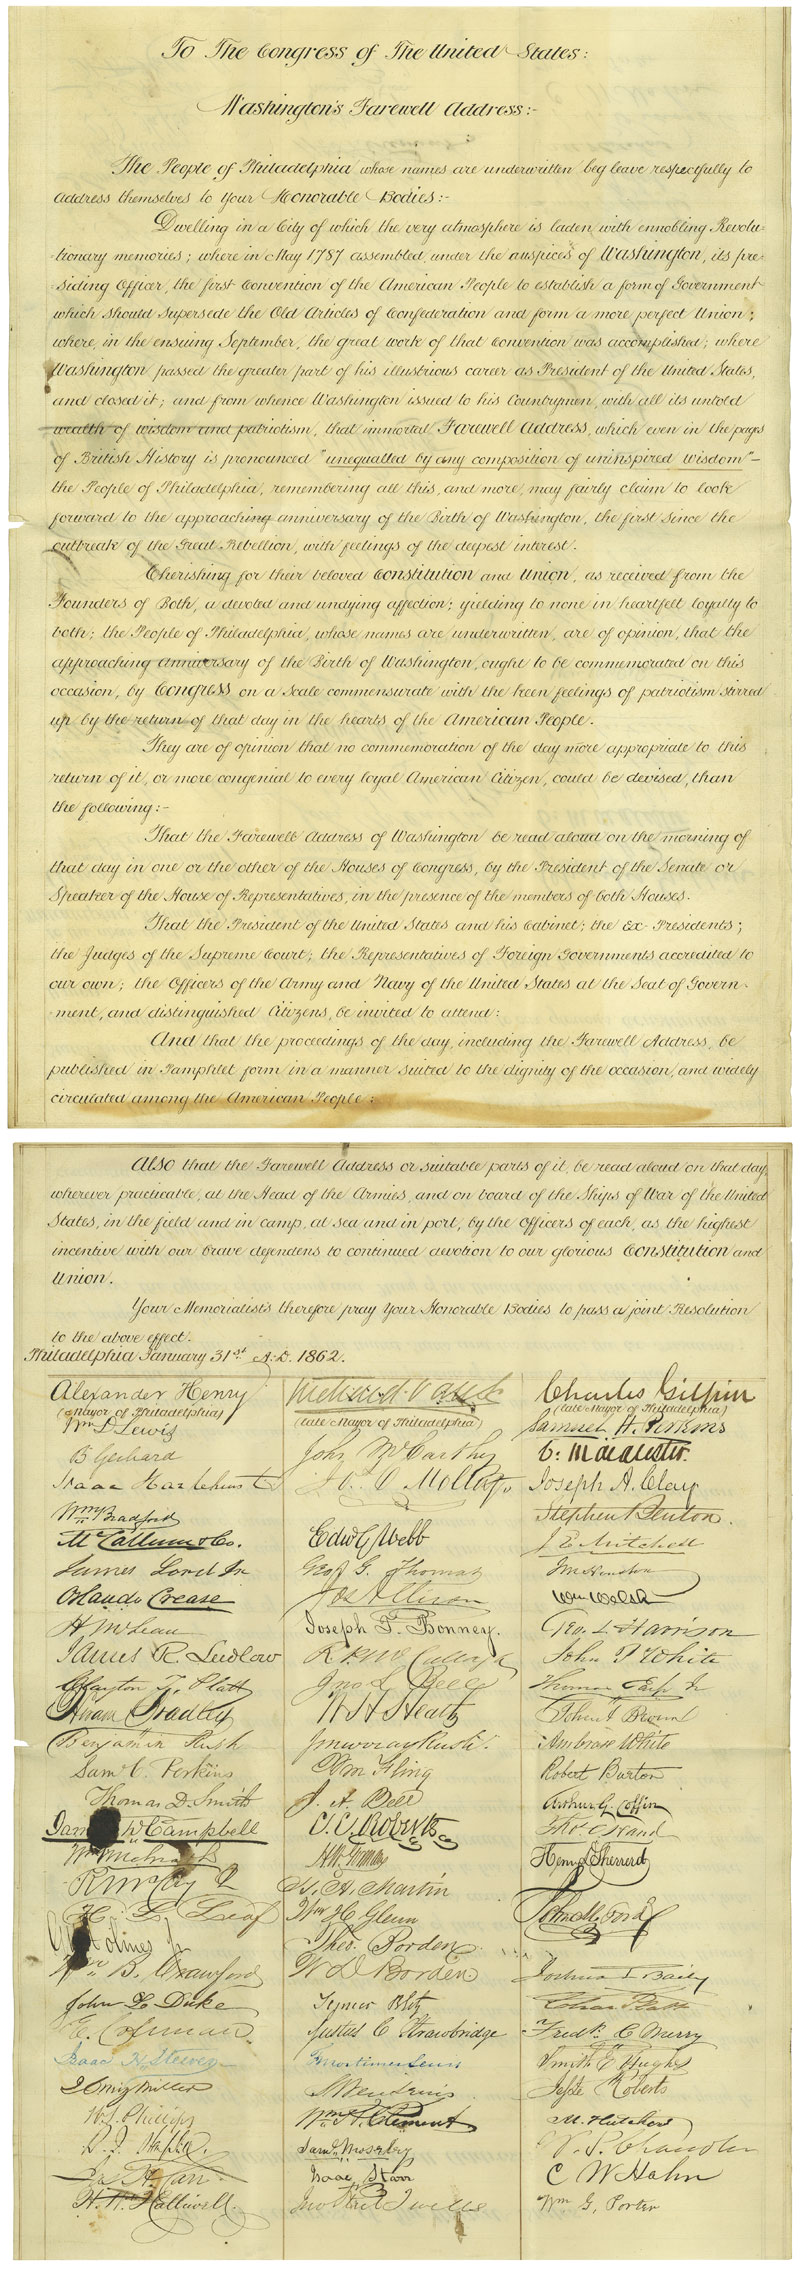 To The Congress of The United States:
Washington's Farewell Address:-
The People of Philadelphia whose names are underwritten beg leave respectfully to
address themselves to your Honorable Bodies:-
Dwelling in a City of which the very atmosphere is laden with ennobling Revolu-
tionary memories; where in May 1787 assembled, under the auspices of Washington, its pre-
siding Officer, the first Convention of the American People to establish a form of Government
which should supersede the Old Articles of Confederation and form a more perfect Union;
where, in the ensuing September, the great work of that Convention was accomplished; where
Washington passed the greater part of his illustrious career as President of the United States,
and closed it; and from whence Washington issued to his Countrymen, with all its untold
wealth of wisdom and patriotism, that immortal Farewell Address, which even in the pages
of British History is pronounced "unequalled by any composition of uninspired wisdom"-
the People of Philadelphia, remembering all this, and more, may fairly claim to look
forward to the approaching anniversary of the Birth of Washington, the first since the
outbreak of the Great Rebellion, with feelings of the deepest interest.
Cherishing for their beloved Constitution and Union, as received from the
Founders of Both, a devoted and undying affection; yielding to none in heartfelt loyalty to
both; the People of Philadelphia, whose names are underwritten, are of opinion, that the
approaching anniversary of the Birth of Washington, ought to be commemorated on this
occasion, by Congress on a scale commensurate with the keen feelings of patriotism stirred
up by the return of that day in the hearts of the American People.
They are of opinion that no commemoration of the day more appropriate to this
return of it, or more congenial to every loyal American Citizen, could be devised, than
the following:-
That the Farewell Address of Washington be read aloud on the morning of
that day in one or the other of the Houses of Congress, by the President of the Senate or
Speaker of the House of Representatives, in the presence of the members of both Houses.
That the President of the United States and his Cabinet; the Ex-Presidents;
the Judges of the Supreme Court; the Representatives of Foreign Governments accredited to
our own; the Officers of the Army and Navy of the United States at the Seat of Govern-
ment, and distinguished Citizens, be invited to attend:
And that the proceedings of the day, including the Farewell Address, be
published in Pamphlet form in a manner suited to the dignity of the occasion, and widely
circulated among the American People:
Also that the Farewell Address or suitable parts of it, be read aloud on that day,
wherever practicable, at the Head of the Armies, and on board of the Ships of War of the United
States, in the field and in camp, at sea and in port, by the Officers of each, as the highest
incentive with our brave defenders to continued devotion to our glorious Constitution and
Union.
Your Memorialists therefore pray Your Honorable Bodies to pass a joint Resolution
to the above effect.
Philadelphia January 31st A.D. 1862.
Alexander Henry
(Mayor of Philadelphia)
Wm D Lewis
B Gerhard
Isaac Hazlehurst
Wm Bradford
McCallum & Co.
James Lord Jr
Orlando Crease
H McLean
James R. Ludlow
Clayton T. Platt
Hiram Bradley
Benjamin Rush
Saml C. Perkins
Thomas D. Smith
W Campbell
H L Leaf
Wm B. Crawford
John L Duke
E. Cofman
Isaac H Steever
Miller
W.J. Phillips
Tarr
H. W. Halliwell
(late Mayor of Philadelphia)
John McCarthy
Edw G Webb
Geo G. Thomas
Jos Allison
Joseph T. Bonney.
Jno L Bell
W H Heatly
J Murray Rush.
Wm Fling
J. A. Bell
C. C. Roberts
H. A. Martin
Wm H Glenn
Theo. Borden
W D Borden
Justus C Strawbridge
F Mortimer Lewis
S Weir Lewis
Wm H. Clement
Saml Moseley
Isaac Starr
Charles Gilpin
(late Mayor of Philadelphia)
Samuel H. Perkins
C. Macalester.
Joseph A. Clay
Stephen Benton.
J E Mitchell
Wm Welsh
Geo. L Harrison
John P White
Thomas Earp Jr
John A Brown
Ambrose White
Robert Burton
Arthur G. Coffin
Thos C Hand
Henry D Sherrerd
John M. Ford
Joshua T Baily
Chas Platt
Fredk. C Merry
Smith E Hughes
Jesse Roberts
C W Hahn
Wm G. Porter